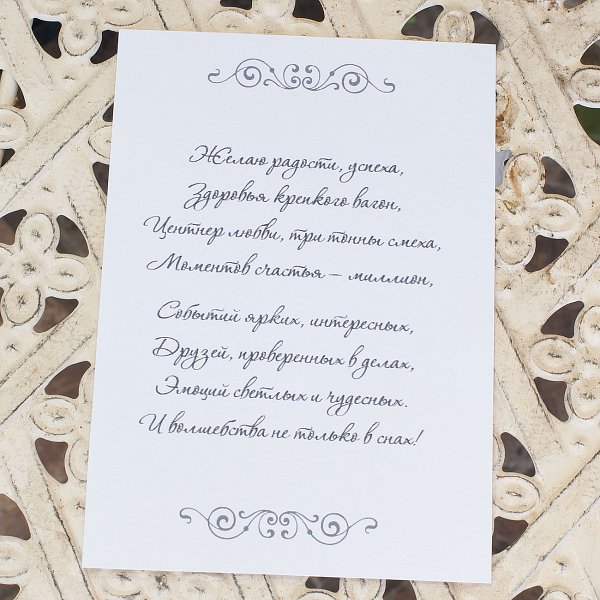 Желаю радости, успеха,
Здоровья крепкого вагон,
Центнер любви, три тонны смеха,
Моментов счастья – миллион,
Событий ярких, интересных,
Друзей, проверенных в делах,
Эмоций светлых и чудесных.
И волшебства не только в снах!